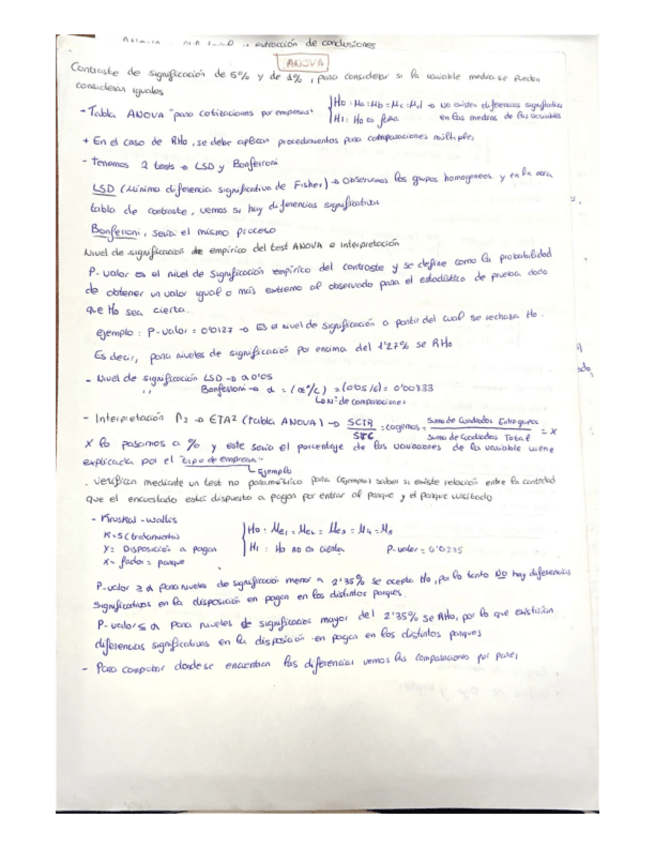 extracción de conclusiones
ANOVA
Contraste de significación de 5% y de 1%, para considerar si la variable media se pueden
considerar iguales
- Tabla ANOVA "para cotizaciones por empresas" { H0: Ma = Mb = Mc = Md → No existen diferencias significativas
H1: H0 es falsa en las medias de las variables
+ En el caso de RH0, se debe aplican procedimientos para comparaciones múltiples
- Tenemos 2 tests → LSD y Bonferroni
LSD (Mínima diferencia significativa de Fisher) → Observamos los grupos homogeneos y en la otra
tabla de contraste, vemos si hay diferencias significativas
Bonferroni, seria el mismo proceso
Nivel de significación de empírico del test ANOVA e interpretación
P-valor es el nivel de significación empírico del contraste y se define como la probabilidad
de obtener un valor igual o más extremo al observado para el estadístico de prueba dado
que H0 sea cierta.
ejemplo: P-valor = 0'0127 → Es el nivel de significación a partir del cual se rechaza H0.
Es decir, para niveles de significación por encima del 1'27% se RH0
- Nivel de significación LSD → α 0'05
,, Bonferroni → α = (α/c) = (0'05/6) = 0'00833
↳ Nº de comparaciones
- Interpretación → ETA² (tabla ANOVA) → SCTR/STC = cogemos = Suma de Cuadrados Entregrupos / Suma de Cuadrados Total = x
x lo pasamos a % y este seria el porcentaje de las variaciones de la variable viene
explicada por el "tipo de empresa"
↳ Ejemplo
. Verifican mediante un test no paramétrico para (ejemplo) saber si existe relación entre la cantidad
que el encuestado está dispuesto a pagar por entrar al parque y el parque visitado
- Kruskal-Wallis
K=5 (tratamientos) { H0: Me1 = Me2 = Me3 = M4 = M5
Y= Disposición a pagar H1: H0 no es cierta P-valor = 0'0235
X= factor = parque
P-valor ≥ α para niveles de significación menor a 2'35% se acepta H0, por lo tanto NO hay diferencias
significativas en la disposición en pagar en los distintos parques.
P-valor ≤ α para niveles de significación mayor del 2'35% se RH0, por lo que existirían
diferencias significativas en la disposición en pagar en los distintos parques
- Para comprobar donde se encuentran las diferencias vemos las comparaciones por pares